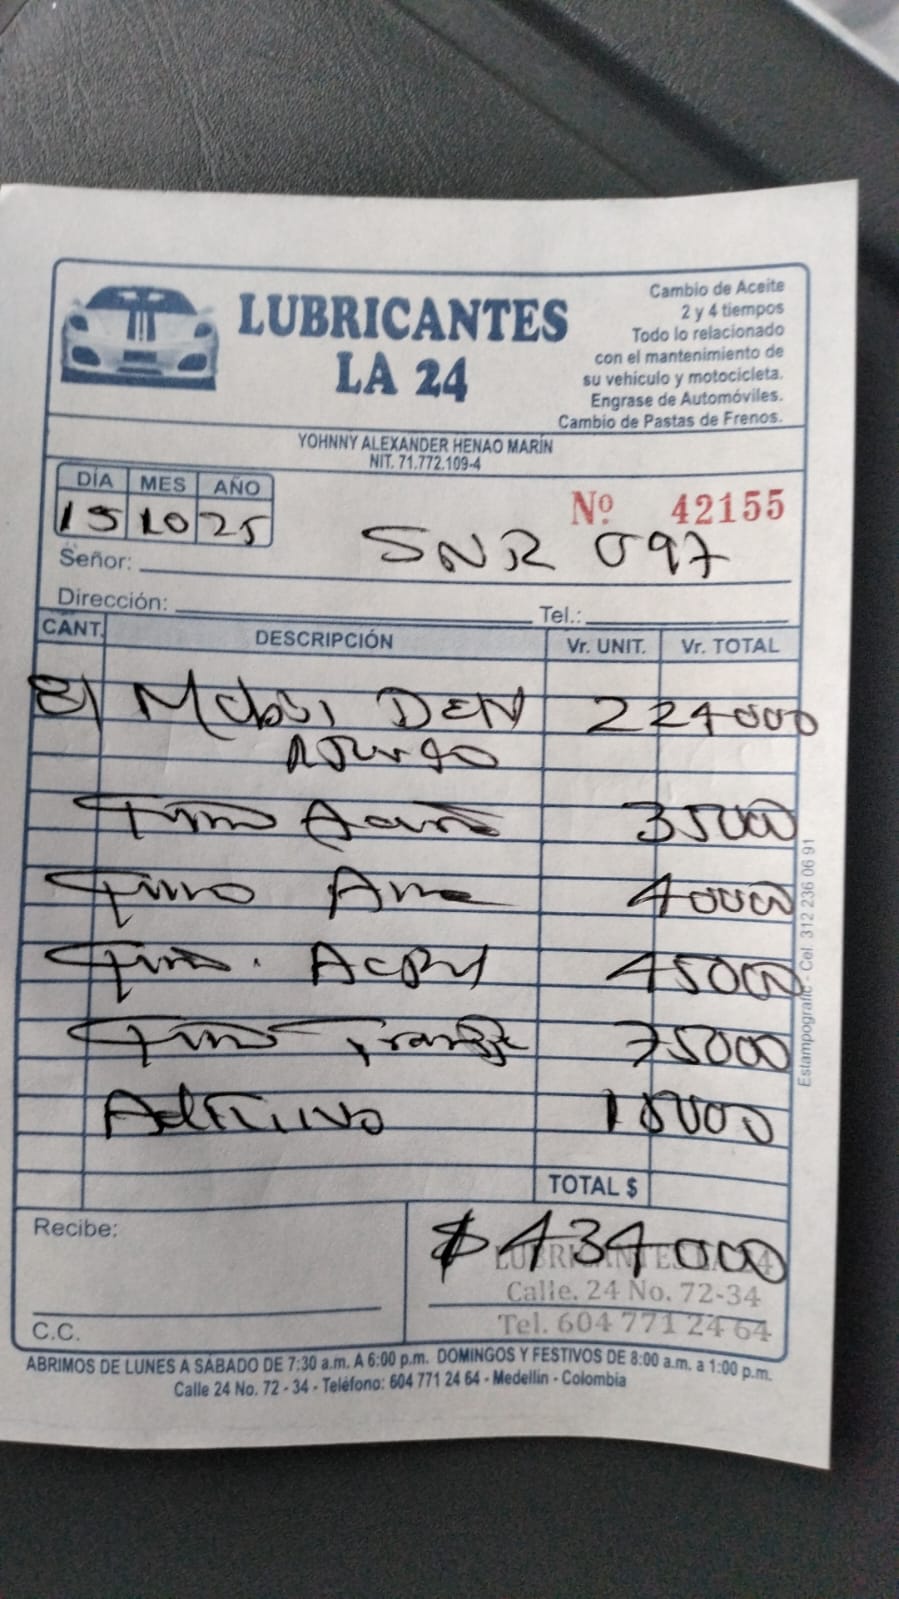 LUBRICANTES
LA 24
Cambio de Aceite
2 y 4 tiempos
Todo lo relacionado
con el mantenimiento de
su vehiculo y motocicleta.
Engrase de Automóviles.
Cambio de Pastas de Frenos.
YOHNNY ALEXANDER HENAO MARÍN
NIT. 71.772.109-4
DÍA MES AÑO
15 10 25
Nº. 42155
SNR 097
Señor:
Dirección: Tel.:
CANT. DESCRIPCIÓN Vr. UNIT. Vr. TOTAL
8/ Mobil 224000
35000
40000
45000
75000
Aditivo 15000
TOTAL $
Recibe:
$434000
LUBRICANTES LA 24
Calle. 24 No. 72-34
Tel. 604 771 24 64
C.C.
ABRIMOS DE LUNES A SÁBADO DE 7:30 a.m. A 6:00 p.m. DOMINGOS Y FESTIVOS DE 8:00 a.m. a 1:00 p.m.
Calle 24 No. 72 - 34 - Teléfono: 604 771 24 64 - Medellín - Colombia
Estampografic - Cel. 312 236 06 91